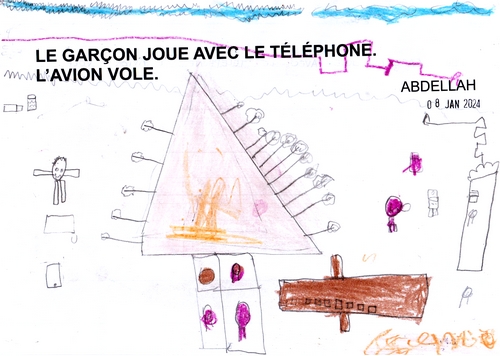 LE GARÇON JOUE AVEC LE TÉLÉPHONE.
L'AVION VOLE.
ABDELLAH
08 JAN 2024